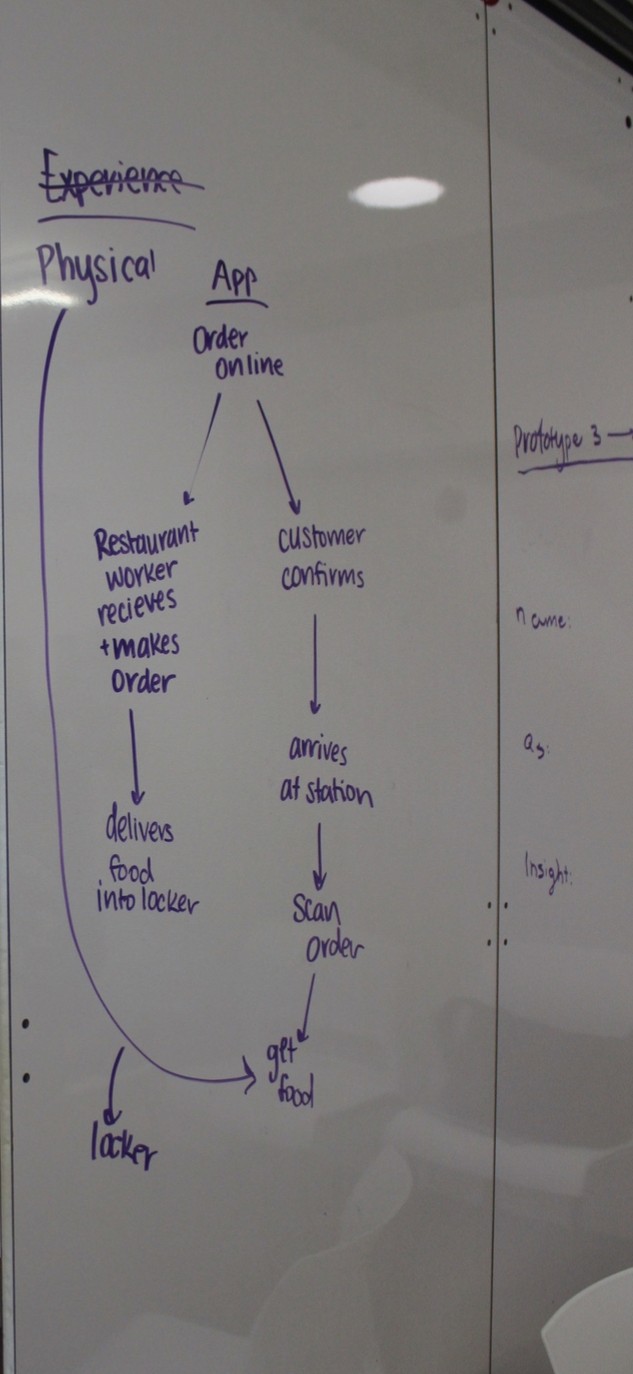 Experience
Physical
App
Order
online
Restaurant
worker
recieves
+makes
order
delivers
food
into locker
customer
confirms
arrives
at station
Scan
order
get
food
locker
Prototype 3
name:
Qs:
Insight: